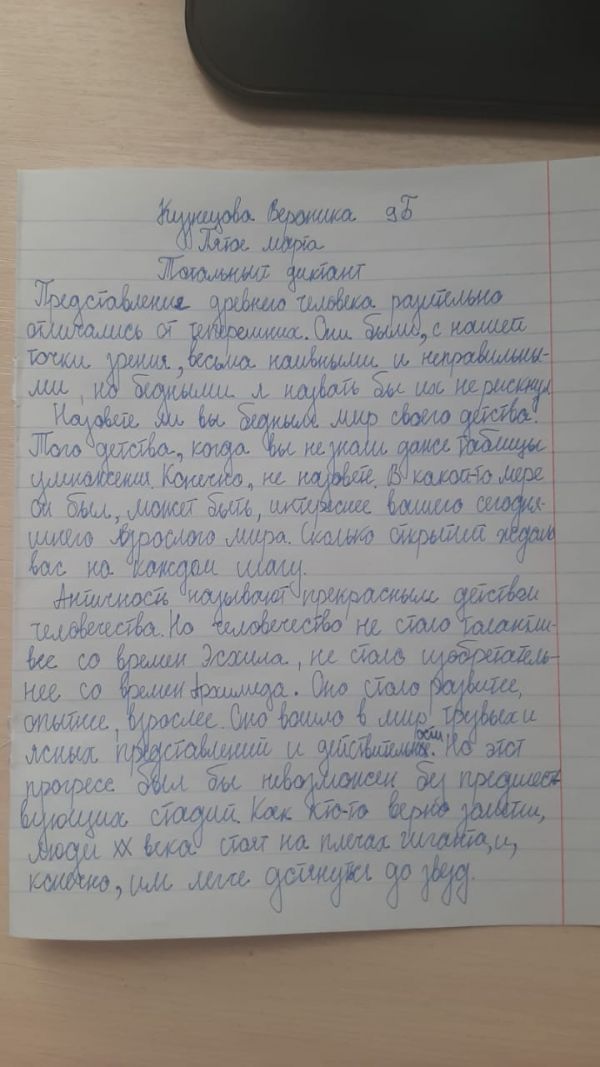 Кузнецова Вероника 9Б
Пятое марта
Тотальный диктант
Представление древнего человека разительно
отличались от теперешних. Они были, с нашей
точки зрения, весьма наивными и неправильны-
ми, но бедными я назвать бы их не рискнул
Назовете ли вы бедным мир своего детства?
Того детства, когда вы не знали даже таблицы
умножения. Конечно, не назовете. В какой-то мере
он был, может быть, интереснее вашего сегодня-
шнего взрослого мира. Сколько открытий ждало
вас на каждом шагу.
Античность называют прекрасным детством
человечества. Но человечество не стало талантли-
вее со времен Эсхила, не стало изобретатель-
нее со времен Архимеда. Оно стало развитее,
опытнее, взрослее. Оно вошло в мир трезвых и
ясных представлений и действительности. Но этот
прогресс был бы невозможен без предшест-
вующих стадий. Как кто-то верно заметил,
люди XX века стоят на плечах гиганта, и,
конечно, им легче дотянуться до звезд.